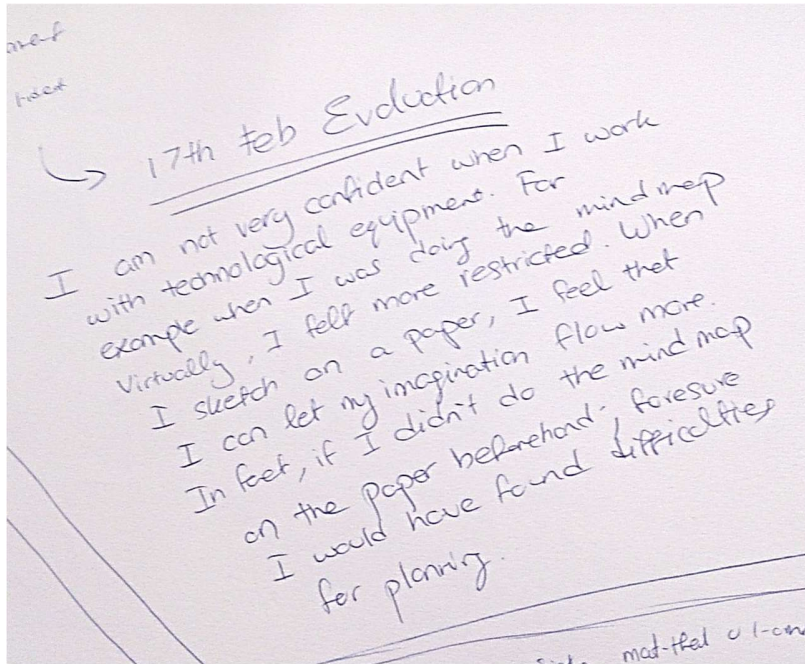 17th Feb Evaluation
I am not very confident when I work
with technological equipment. For
example when I was doing the mind map
Virtually, I felt more restricted. When
I sketch on a paper, I feel that
I can let my imagination flow more.
In fact, if I didn't do the mind map
on the paper beforehand, foresure
I would have found difficulties
for planning.